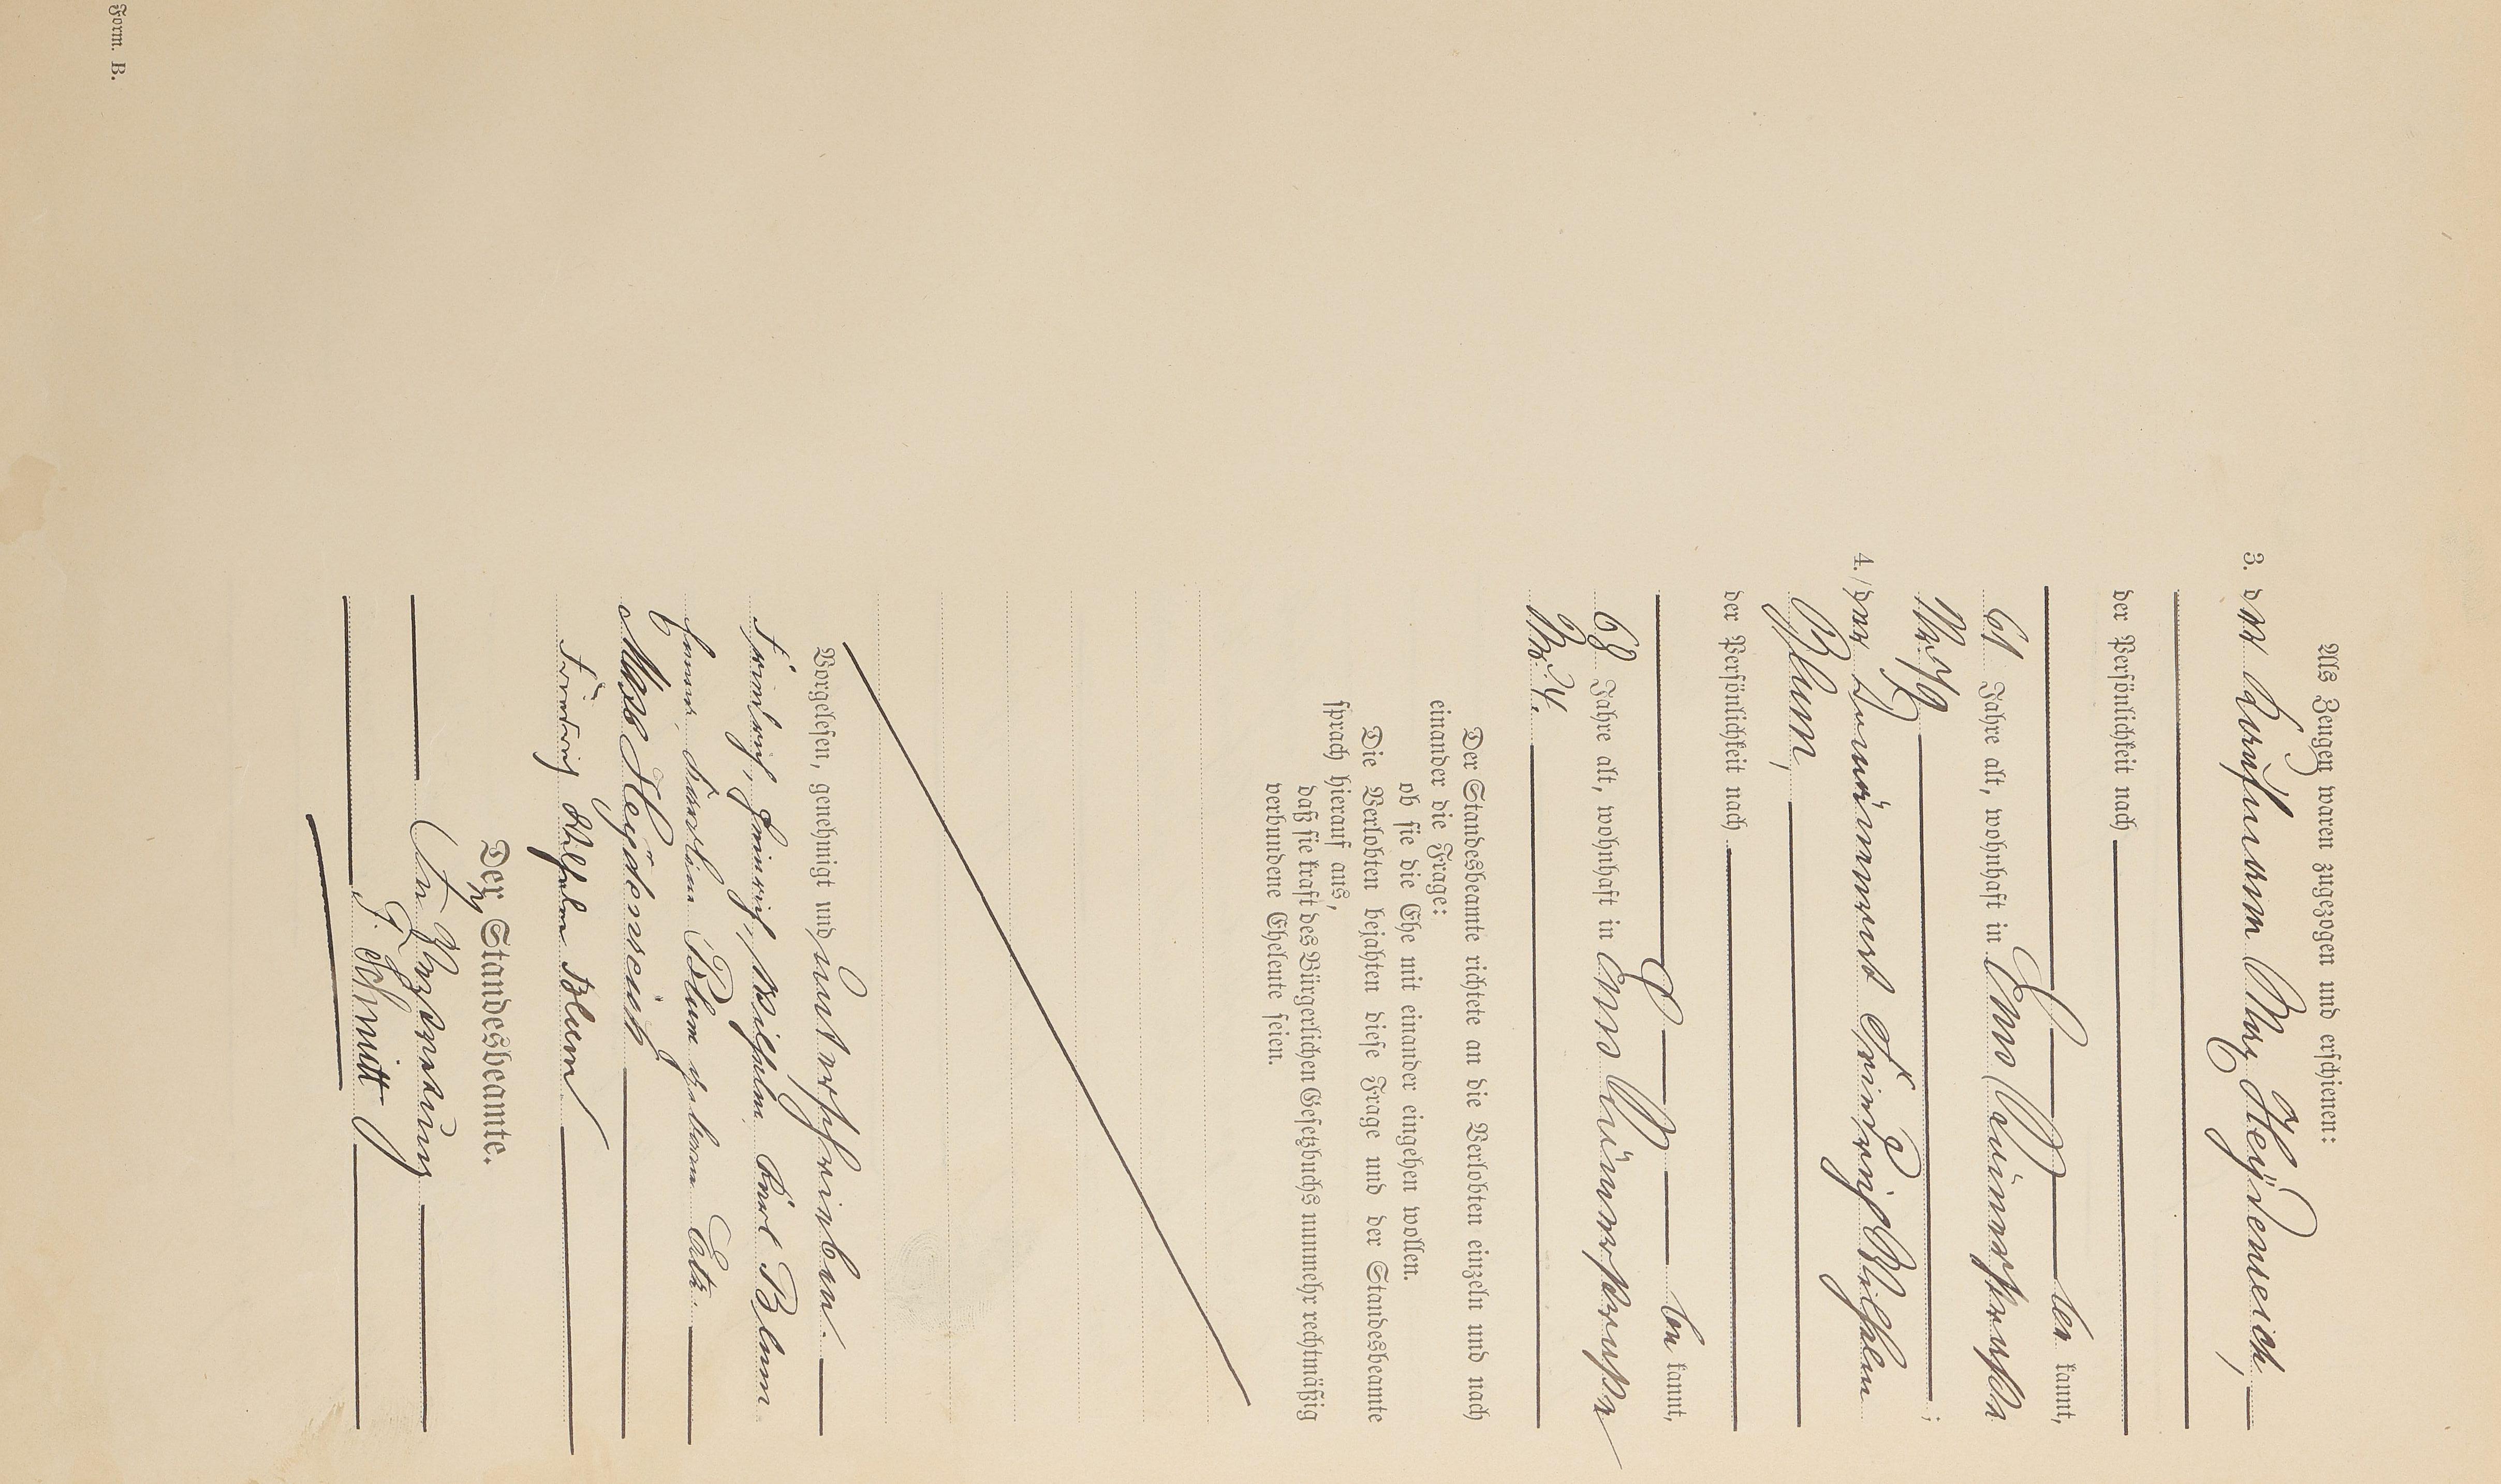 Als Zeugen waren zugezogen und erschienen:
3. der Kaufmann Max Heydenreich,
der Persönlichkeit nach
be kannt,
61 Jahre alt, wohnhaft in
4. der Friedrich Wilhelm
Blum,
der Persönlichkeit nach
be kannt,
68 Jahre alt, wohnhaft in
Der Standesbeamte richtete an die Verlobten einzeln und nach
einander die Frage:
ob sie die Ehe mit einander eingehen wollen.
Die Verlobten bejahten diese Frage und der Standesbeamte
sprach hierauf aus,
daß sie kraft des Bürgerlichen Gesetzbuchs nunmehr rechtmäßig
verbundene Eheleute seien.
Vorgelesen, genehmigt und unterschrieben.
Friedrich, Heinrich, Wilhelm, Karl Blum
Blum geboren
Max Heydenreich
Friedrich Wilhelm Blum
Der Standesbeamte.
In Vertretung
Schmidt
Form. B.